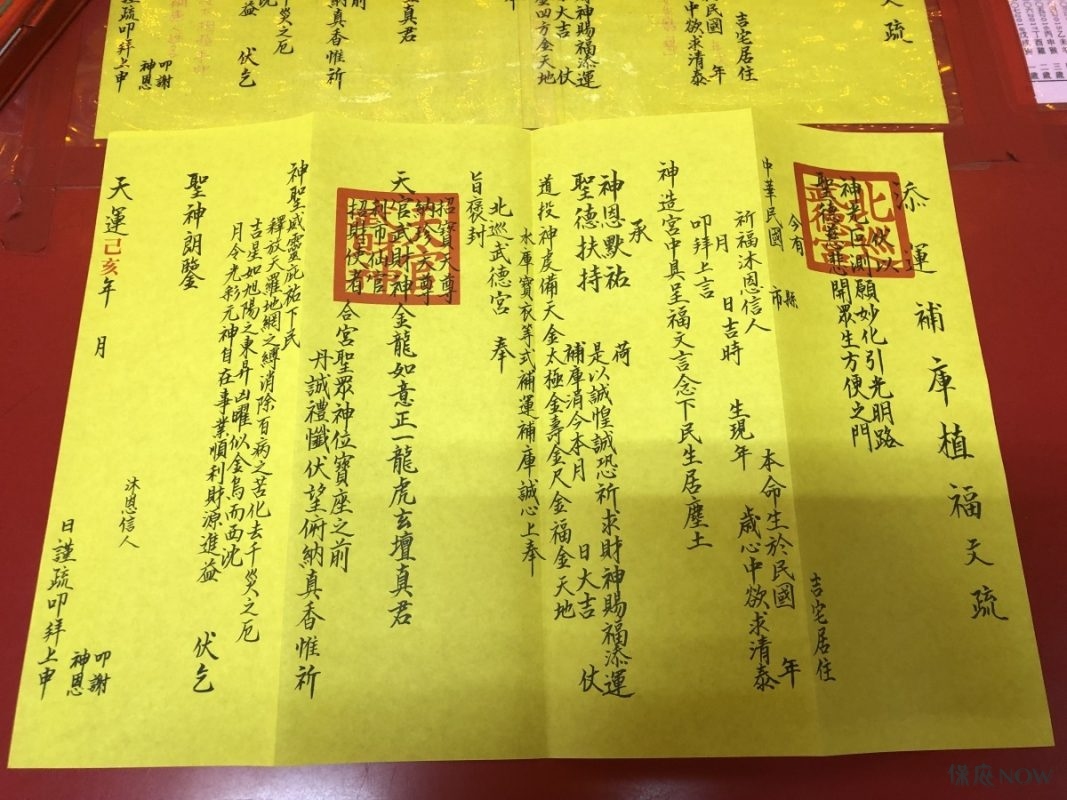 添運補庫植福文疏
伏以
神光回測願妙化引光明路
聖德慈悲開眾生方便之門
今有
中華民國 縣市 吉宅居住
祈福沐恩信人 本命生於民國 年
月 日吉時 生現年 歲心中欲求清泰
叩拜上言
神造宮中具呈福文言念下民生居塵土
承
神恩默祐 荷
聖德扶持 是以誠惶誠恐祈求財神賜福添運
補庫消今本月 日大吉 仗
道投神虔備天金太極金壽金尺金福金天地
水庫寶衣等式補運補庫誠心上奉
旨褒封
北巡武德宮 奉
天官武財神金龍如意正一龍虎玄壇真君
招寶天尊
納珍天尊
利市仙官
招財使者 合宮聖眾神位寶座之前
丹誠禮懺伏望俯納真香惟祈
神聖威靈庇祐下民
釋放天羅地網之縛消除百病之苦化去千災之厄
吉星如旭陽之東昇凶曜似金烏而西沈
月令光彩元神自在事業順利財源進益 伏乞
聖神朗鑒
沐恩信人 叩謝神恩
天運己亥年 月 日謹疏叩拜上申
文疏
吉宅居住
民國 年
中欲求清泰
神賜福添運
大吉 仗
四方金天地
真君
真香惟祈
災之厄
沈
益 伏乞
叩謝神恩
謹疏叩拜上申
保庇NOW